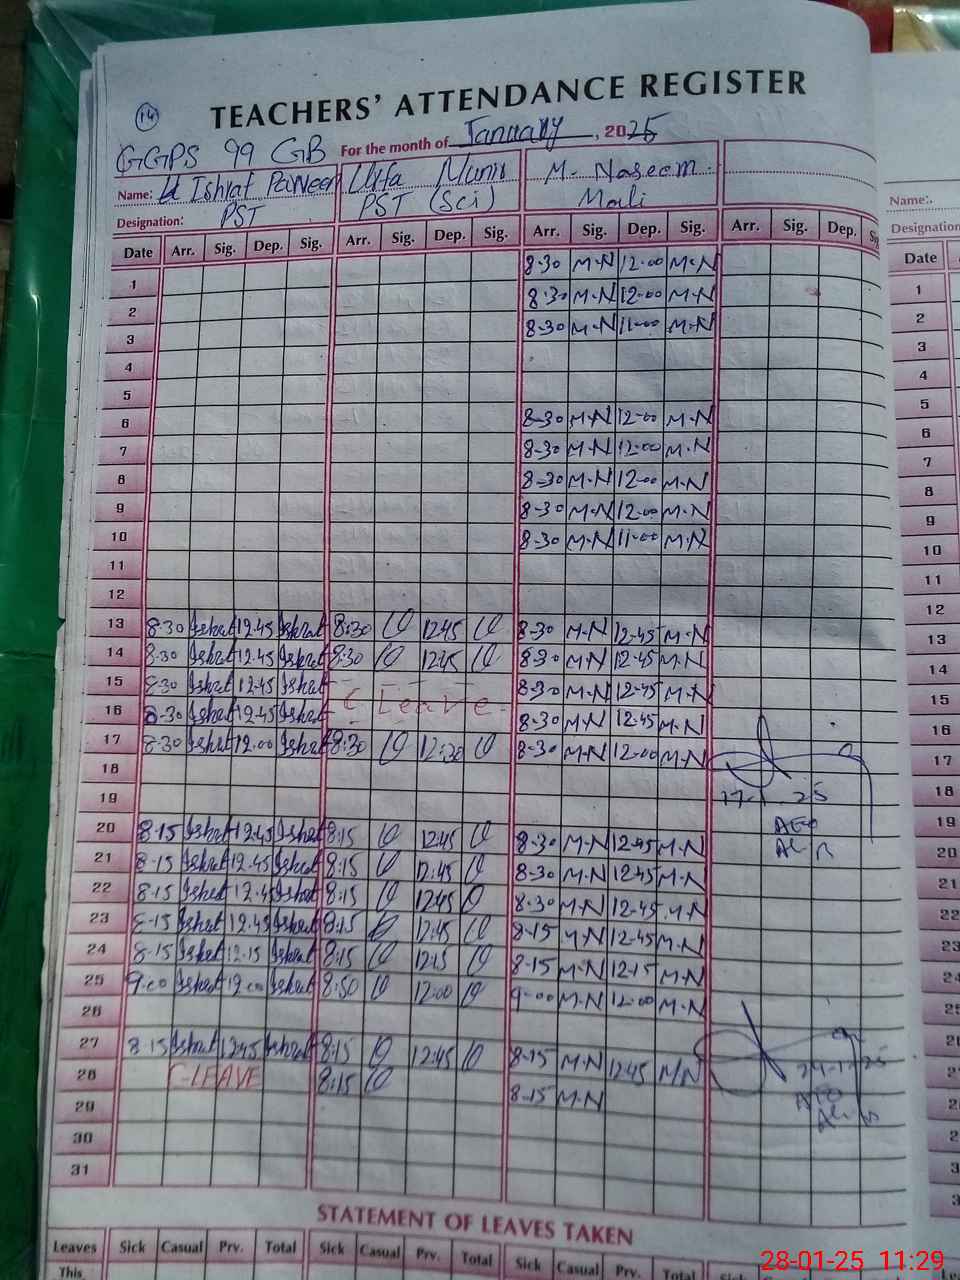 14
TEACHERS' ATTENDANCE REGISTER
GGPS 99 GB For the month of January, 2025
Name: Ishrat Parveen Urfa Munir M. Naseem
Designation: PST PST (Sci) Mali
Date Arr. Sig. Dep. Sig. Arr. Sig. Dep. Sig. Arr. Sig. Dep. Sig. Arr. Sig. Dep.
1 8-30 M-N 12-00 M-N
2 8-30 M-N 12-00 M-N
3 8-30 M-N 11-00 M-N
4
5
6 8-30 M-N 12-00 M-N
7 8-30 M-N 12-00 M-N
8 8-30 M-N 12-00 M-N
9 8-30 M-N 12-00 M-N
10 8-30 M-N 11-00 M-N
11
12
13 8-30 Ishrat 12-45 Ishrat 8:30 12:45 8-30 M-N 12-45 M-N
14 8-30 Ishrat 12-45 Ishrat 8:30 12:45 8-30 M-N 12-45 M-N
15 8-30 Ishrat 12-45 Ishrat C Leave 8-30 M-N 12-45 M-N
16 8-30 Ishrat 12-45 Ishrat 8-30 M-N 12-45 M-N
17 8-30 Ishrat 12-00 Ishrat 8:30 12:30 8-30 M-N 12-00 M-N
17-1-25
18
19
AEO
20 8-15 Ishrat 12-45 Ishrat 8:15 12:45 8-30 M-N 12-45 M-N
21 8-15 Ishrat 12-45 Ishrat 8:15 12:45 8-30 M-N 12-45 M-N
22 8-15 Ishrat 12-45 Ishrat 8:15 12:45 8-30 M-N 12-45 M-N
23 8-15 Ishrat 12-45 Ishrat 8:15 12:45 8-15 M-N 12-45 M-N
24 8-15 Ishrat 12-15 Ishrat 8:15 12:15 8-15 M-N 12-15 M-N
25 9-00 Ishrat 12-00 Ishrat 8:50 12:00 9-00 M-N 12-00 M-N
26
27 8-15 Ishrat 12-45 Ishrat 8:15 12:45 8-15 M-N 12-45 M-N
28 C-LEAVE 8:15 8-15 M-N
AEO
29
30
31
STATEMENT OF LEAVES TAKEN
Leaves Sick Casual Prv. Total Sick Casual Prv. Total Sick Casual Prv. Total Sick
This
Name:
Designation
Date
1
2
3
4
5
6
7
8
9
10
11
12
13
14
15
16
17
18
19
20
21
22
23
24
28-01-25 11:29